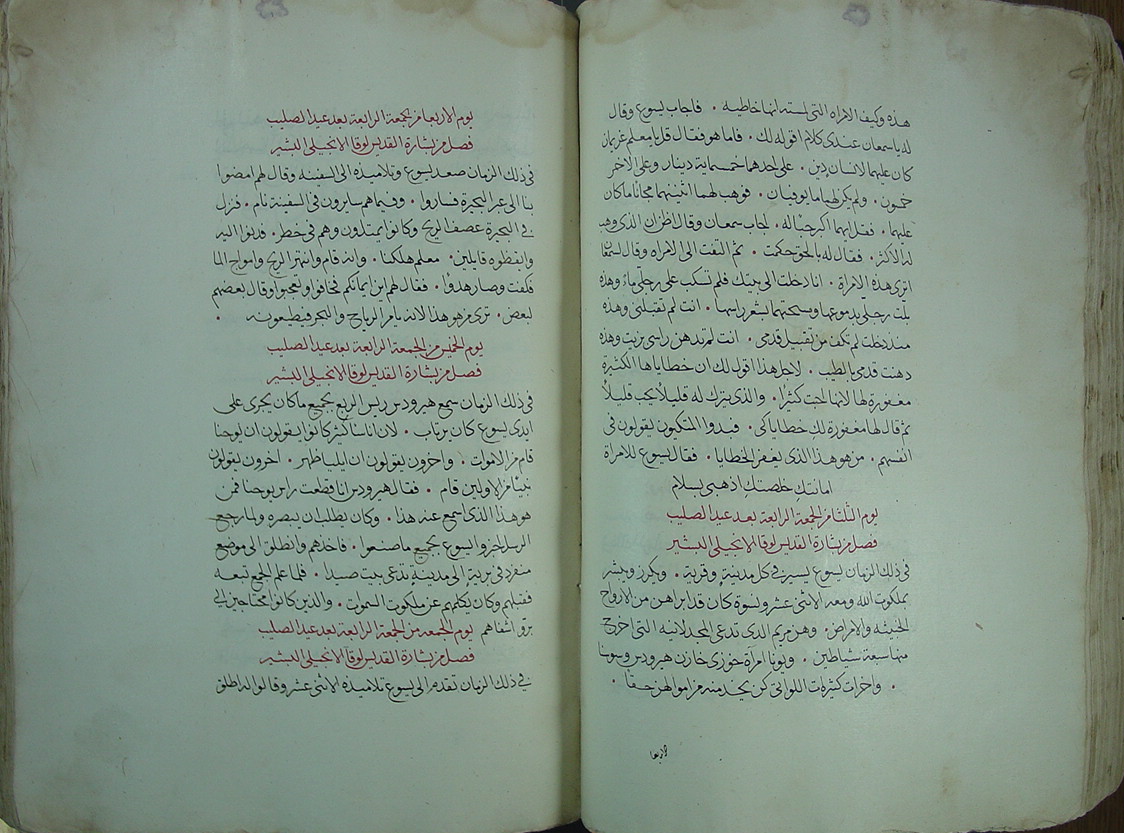 هذه وكيف الامراه التي لمسته انها خاطيه . فاجاب يسوع وقال
له يا سمعان عندي كلام اقوله لك . فاما هو فقال قل يا معلم غريمان
كان عليهما لانسان دين . على احدهما خمسماية دينار وعلى الاخر
خمسون . ولم يكن لهما ما يوفيان . فوهب لهما اثنينهما مجانا ما كان
عليهما . فقل ايهما اكبر حبا له . اجاب سمعان وقال اظن ان الذي وهب
له الاكثر . فقال له بالحق حكمت . ثم التفت الى الامراه وقال لسمعان
اترى هذه الامراة . انا دخلت الى بيتك فلم تسكب على رجلي ماء وهذه
بلت رجلي بدموعها ومسحتهما بشعر راسها . انت لم تقبلني وهذه
منذ دخلت لم تكف من تقبيل قدمي . انت لم تدهن راسي بزيت وهذه
دهنت قدمي بالطيب . لاجل هذا اقول لك ان خطاياها الكثيرة
مغفورة لها لانها احبت كثيرا . والذي يترك له قليلا يحب قليلا
ثم قال لها مغفورة لك خطاياكي . فبدوا المتكيون يقولون في
انفسهم . من هو هذا الذي يغفر الخطايا . فقال يسوع للامراة
امانتك خلصتك اذهبي بسلام
يوم الثلثا من الجمعة الرابعة بعد عيد الصليب
فصل من بشارة القديس لوقا الانجيلي البشير
في ذلك الزمان يسوع يسير في كل مدينة وقرية . ويكرز ويبشر
بملكوت الله ومعه الاثني عشر ونسوة كان قد ابراهن من الارواح
الخبيثه والامراض . وهن مريم الذي تدعى المجدلانيه التي اخرج
منها سبعة شياطين . ويونا امرأة خوزي خازن هيرودس وسوسنا
. واخرات كثيرات اللواتي كن يخدمنه من اموالهن حقا .
الاربعا
يوم الاربعا من الجمعة الرابعة بعد عيد الصليب
فصل من بشارة القديس لوقا الانجيلي البشير
في ذلك الزمان صعد يسوع وتلاميذه الى السفينه وقال لهم امضوا
بنا الى عبر البحيرة فساروا . وفيما هم سايرون في السفينة نام . فنزل
في البحيرة عصف الريح وكانوا يمتلون وهم في خطر . فدنوا اليه
وايقظوه قايلين . معلم هلكنا . وانه قام وانتهر الريح وامواج الما
فكفت وصار هدوا . فقال لهم اين ايمانكم فخافوا وتعجبوا وقال بعضهم
لبعض . ترى من هو هذا الانه يامر الرياح والبحر فيطيعونه .
يوم الخميس من الجمعة الرابعة بعد عيد الصليب
فصل من بشارة القديس لوقا الانجيلي البشير
في ذلك الزمان سمع هيرودس ريس الربع بجميع ما كان يجري على
ايدي يسوع كان يرتاب . لان اناسا كثير كانوا يقولون ان يوحنا
قام من الاموات . واخرون يقولون ان ايليا ظهر . اخرون يقولون
نبيا من الاولين قام . فقال هيرودس انا قطعت راس يوحنا فمن
هو هذا الذي اسمع عنه هذا . وكان يطلب ان يبصره ولما رجع
الرسل اخبروا يسوع بجميع ما صنعوا . فاخذهم وانطلق الى موضع
منفرد في برية الى مدينة تدعى بيت صيدا . فلما علم الجمع تبعه
فقبلهم وكان يكلمهم عن ملكوت السموات . والذين كانوا محتاجين الى
برو اشفاهم يوم الجمعه من الجمعة الرابعة بعد عيد الصليب
فصل من بشارة القديس لوقا الانجيلي البشير
في ذلك الزمان تقدم الى يسوع تلاميذه الاثني عشر وقالوا له اطلق